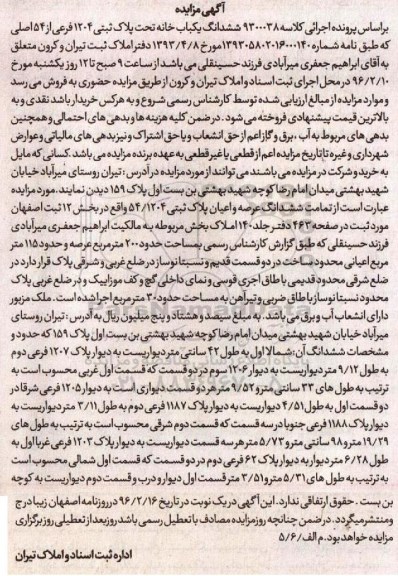 آگهی مزایده
براساس پرونده اجرائی کلاسه ۹۳۰۰۰۳۸ ششدانگ یکباب خانه تحت پلاک ثبتی ۱۲۰۴ فرعی از ۵۴ اصلی
که طبق نامه شماره ۱۳۹۳۰۵۸۰۲۰۱۶۰۰۰۱۴۰ مورخ ۱۳۹۳/۴/۸ دفتر املاک ثبت تیران و کرون متعلق
به آقای ابراهیم جعفری میرآبادی فرزند حسینقلی می باشد از ساعت ۹ صبح تا ۱۲ روز یکشنبه مورخ
۹۶/۲/۱۰ در محل اجرای ثبت اسناد و املاک تیران و کرون از طریق مزایده حضوری به فروش می رسد
و موارد مزایده از مبالغ ارزیابی شده توسط کارشناس رسمی شروع و به هرکس خریدار باشد نقدی و به
بالاترین قیمت پیشنهادی فروخته می شود. درضمن کلیه هزینه ها و بدهی های احتمالی و همچنین
بدهی های مربوط به آب، برق و گاز اعم از حق انشعاب و یا حق اشتراک و نیز بدهی های مالیاتی و عوارض
شهرداری و غیره تا تاریخ مزایده اعم از قطعی یا غیر قطعی به عهده برنده مزایده می باشد. کسانی که مایل
به خرید و شرکت در مزایده می باشند می توانند از مورد مزایده در آدرس: تیران روستای میرآباد خیابان
شهید بهشتی میدان امام رضا کوچه شهید بهشتی بن بست اول پلاک ۱۵۹ دیدن نمایند. مورد مزایده
عبارت است از تمامت ششدانگ عرصه و اعیان پلاک ثبتی ۵۴/۱۲۰۴ واقع در بخش ۱۲ ثبت اصفهان
مورد ثبت در صفحه ۴۶۳ دفتر جلد ۱۴۰ املاک بخش مربوطه به مالکیت ابراهیم جعفری میرآبادی
فرزند حسینقلی که طبق گزارش کارشناس رسمی بمساحت حدود ۲۰۰ مترمربع عرصه و حدود ۱۱۵ متر
مربع اعیانی محدود ساخت در دو قسمت قدیم و نسبتا نوساز در ضلع غربی و شرقی پلاک قرار دارد در
ضلع شرقی محدود قدیمی با طاق آجری قوسی و نمای داخلی گچ و کف موزاییک و در ضلع غربی پلاک
محدود نسبتا نوساز با طاق ضربی و تیرآهن به مساحت حدود ۳۰ مترمربع اجرا شده است. ملک مزبور
دارای انشعاب آب و برق می باشد. به مبلغ سیصد و هشتاد و پنج میلیون ریال به آدرس: تیران روستای
میرآباد خیابان شهید بهشتی میدان امام رضا کوچه شهید بهشتی بن بست اول پلاک ۱۵۹ که حدود و
مشخصات ششدانگ آن: شمالا اول به طول ۴۲ سانتی متر دیواریست به دیوار پلاک ۱۲۰۷ فرعی دوم
به طول ۹/۱۲ متر دیواریست به دیوار ۱۲۰۶ سوم در دو قسمت که قسمت اول غربی محسوب است به
ترتیب به طول های ۳۳ سانتی متر و ۹/۵۲ متر دو قسمت دیواری است به دیوار ۱۲۰۵ فرعی شرقا در
دو قسمت اول به طول ۴/۵۱ دیواریست به دیوار پلاک ۱۱۸۷ فرعی دوم به طول ۳/۱۱ متر دیواریست به
دیوار پلاک ۱۱۸۸ فرعی جنوبا در سه قسمت که قسمت دوم شرقی محسوب است به ترتیب به طول های
۱۹/۲۹ متر و ۹۸ سانتی متر و ۵/۷۳ متر هر سه قسمت دیواریست به دیوار پلاک ۱۲۰۳ فرعی غربا اول به
طول ۶/۲۸ متر دیوار به دیوار پلاک ۶۲ فرعی دوم در دو قسمت که قسمت اول شمالی محسوب است
به ترتیب به طول های ۵/۳۱ متر و ۳/۵۱ متر قسمت اول دیوار و درب و قسمت دوم دیواریست به کوچه
بن بست. حقوق ارتفاقی ندارد. این آگهی در یک نوبت در تاریخ ۹۶/۲/۱۶ در روزنامه اصفهان زیبا درج
و منتشر میگردد. در ضمن چنانچه روز مزایده مصادف با تعطیل رسمی باشد روز بعد از تعطیلی روز برگزاری
مزایده خواهد بود. م الف/۵/۶
اداره ثبت اسناد و املاک تیران